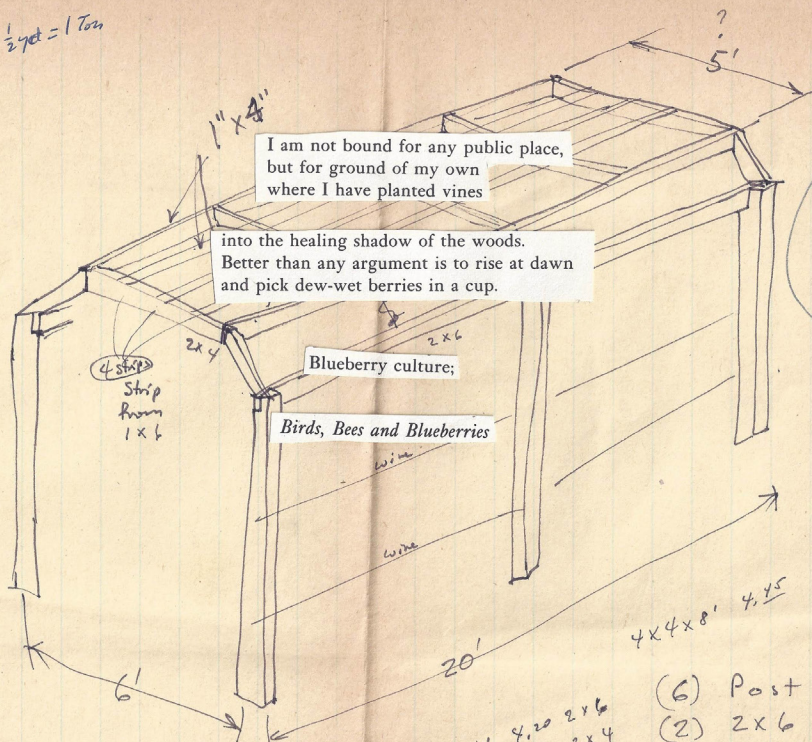 ½ yd = 1 Ton
?
5'
1" x 4"
I am not bound for any public place,
but for ground of my own
where I have planted vines
into the healing shadow of the woods.
Better than any argument is to rise at dawn
and pick dew-wet berries in a cup.
2x4
2x6
4 strips
Strip
from
1x6
Blueberry culture;
Birds, Bees and Blueberries
wire
wire
6'
20'
4x4x8' 4.45
(6) Post
4.20 2x6
(2) 2x6
2x4